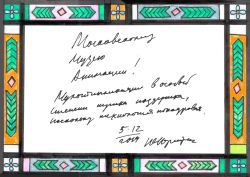 Московскому
Музею
Анимации!
Мультипликации в особой
степени нужна поддержка,
поскольку
5.12
2014